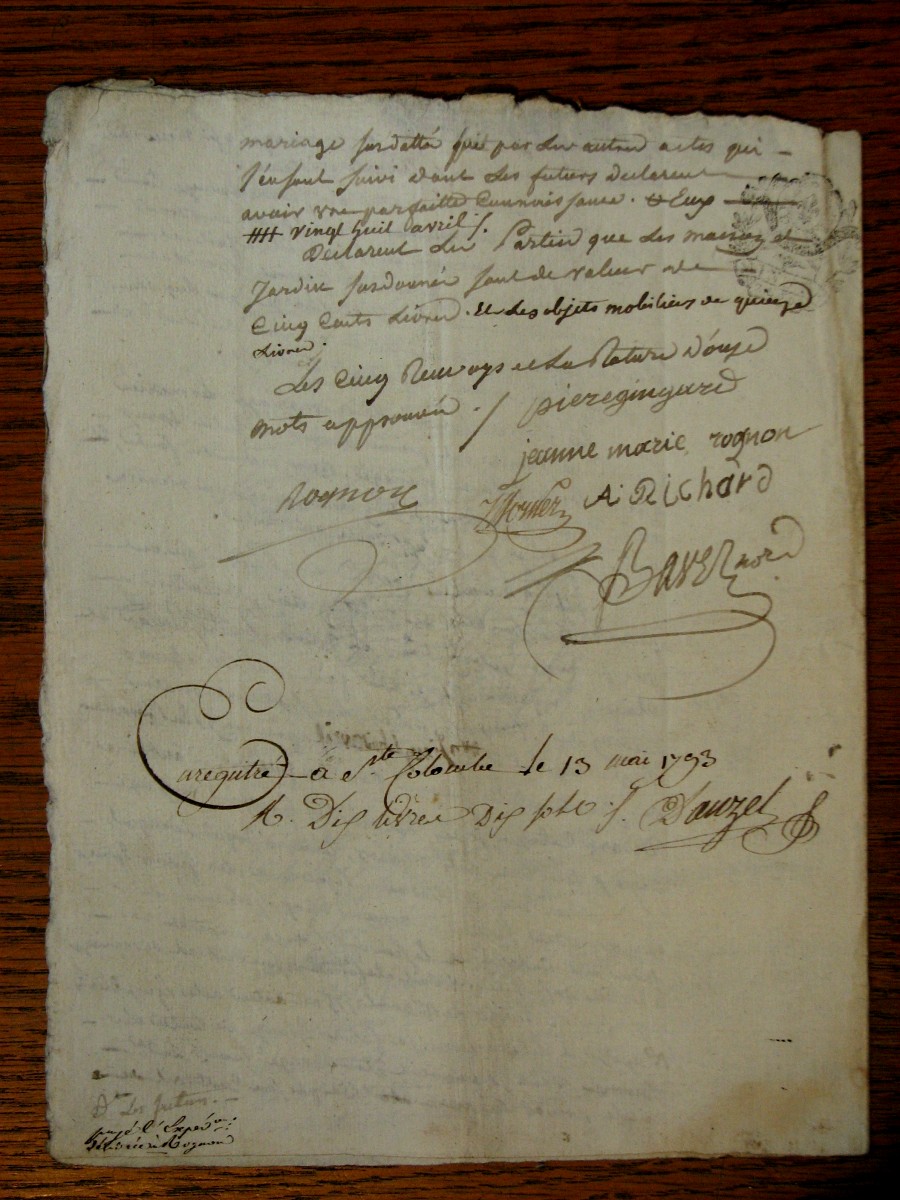 mariage susdatté que par les autres actes qui
l'en sont suivi dont les futurs Déclarent
avoir une parfaitte Connoissance.
vingt huit avril
Déclarent les Parties que les maison et
Jardin susdonnés sont de valeur de
Cinq Cents Livres. et les objets mobiliers de quinze
Livres.
Les Cinq Renvoys et La Rature D'onze
mots approuvés
pieregingard
jeanne marie rognon
rognon A Richard
Bavernord
Enregistré à Ste Colombe le 13 mai 1793
R. Dix livres Dix sols Dauzel
Dt. Les futurs.
payé l'Expéd.on